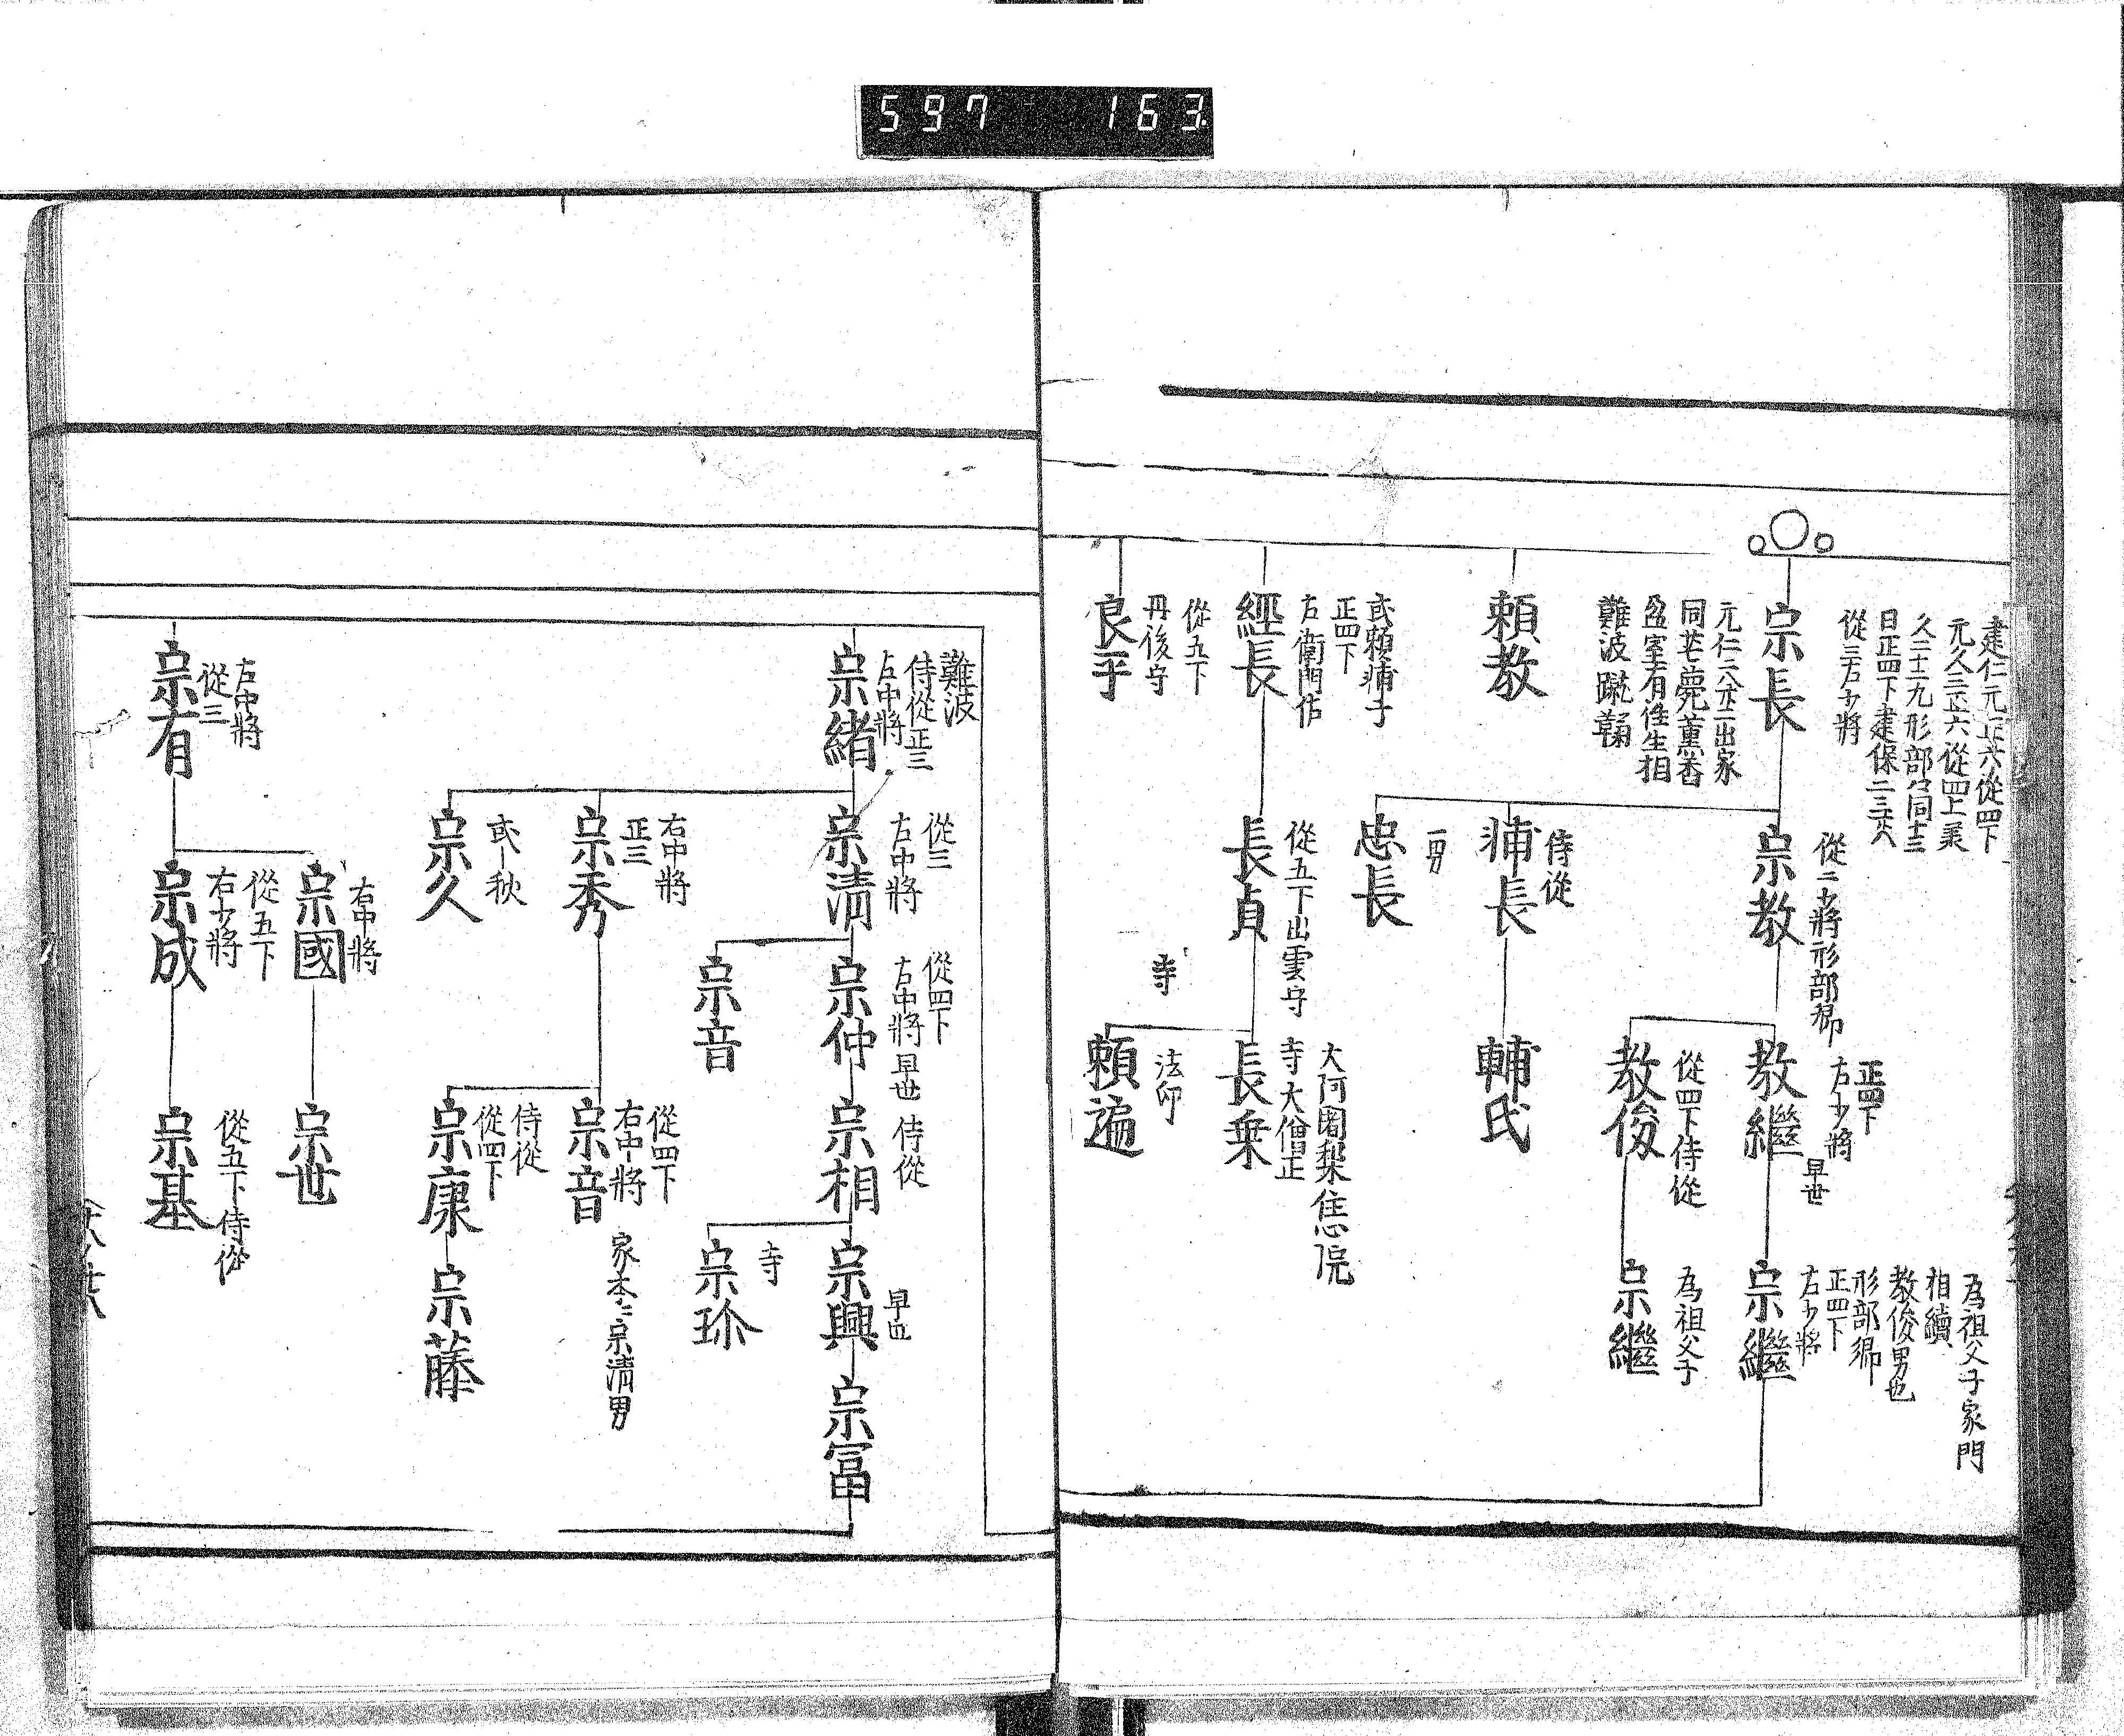 597 163
建仁元正六從四下
元久三正六從四上兼
久二十二九形部
日正四下建保二三廿八
從三右少將
宗長
元仁二八廿二出家
同薨薫香
盈室有往生相
難波蹴鞠
從二少將形部卿
宗教
正四下
右少將
早世
教繼
為祖父子家門
相續
教俊男也
形部卿
正四下
右少將
宗繼
從四下侍從
教俊
為祖父子
宗繼
侍從
輔長
輔氏
一男
忠長
賴教
或賴輔子
正四下
左衛門佐
經長
從五下出雲守
長貞
大阿闍梨
寺大僧正
長乗
寺
法印
賴遍
從五下
丹後守
良平
難波
侍從正三
左中將
宗緒
從三
左中將
宗清
從四下
右中將早世
宗仲
侍從
宗相
早世
宗興
宗冨
寺
宗珎
宗音
右中將
正三
宗秀
從四下
右中將
家本ニ宗清男
宗音
侍從
從四下
宗康
宗藤
或秋
宗久
左中將
從三
宗有
右中將
宗國
宗世
從五下
右少將
宗成
從五下侍從
宗基